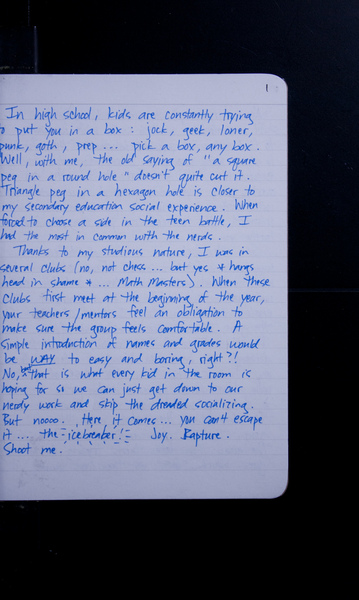 1
In high school, kids are constantly trying
to put you in a box : jock, geek, loner,
punk, goth, prep ... pick a box, any box.
Well, with me, the old saying of "a square
peg in a round hole" doesn't quite cut it.
Triangle peg in a hexagon hole is closer to
my secondary education social experience. When
forced to choose a side in the teen battle, I
had the most in common with the nerds.
Thanks to my studious nature, I was in
several clubs (no, not chess ... but yes * hangs
head in shame * ... Math Masters). When these
clubs first meet at the beginning of the year,
your teachers/mentors feel an obligation to
make sure the group feels comfortable. A
simple introduction of names and grades would
be WAY to easy and boring, right?!
No, but that is what every kid in the room is
hoping for so we can just get down to our
nerdy work and skip the dreaded socializing.
But noooo. Here it comes ... you can't escape
it .... the icebreaker! Joy. Rapture.
Shoot me.